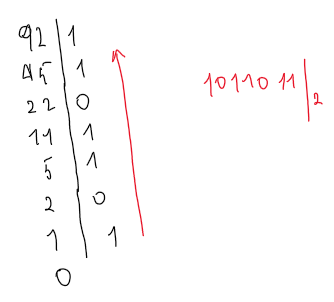 92 | 1
45 | 1
22 | 0
11 | 1
5 | 1
2 | 0
1 | 1
0
1011011|2